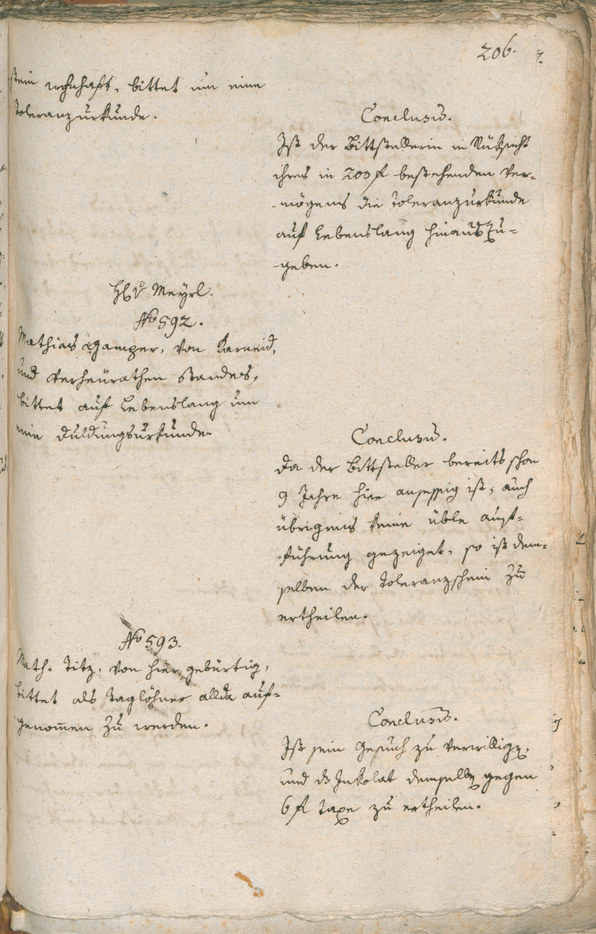 206.
stein wohnhaft, bittet um eine
Toleranzurkunde.
Conclusum.
Ist der Bittstellerin in Rüksicht
ihres in 200 f bestehenden Ver-
mögens die Toleranzurkunde
auf Lebenslang hinauszu-
geben.
H. v. Meyrl.
No 592.
Mathias Gamper, von Karneid,
und verheurathen Standes,
bittet auf Lebenslang um
eine Duldungsurkunde
Conclusum.
Da der Bittsteller bereits schon
9 Jahre hier ansessig ist, auch
übrigens keine üble auf-
führung gezeiget, so ist dem-
selben der Toleranzschein zu
ertheilen.
No 593.
Math. Titz, von hier gebürtig,
bittet als Taglöhner allda auf-
genom̅en zu werden.
Conclusum.
Ist sein Gesuch zu verwilligen,
und ds Inkolat demselben gegen
6 f Taxe zu ertheilen.